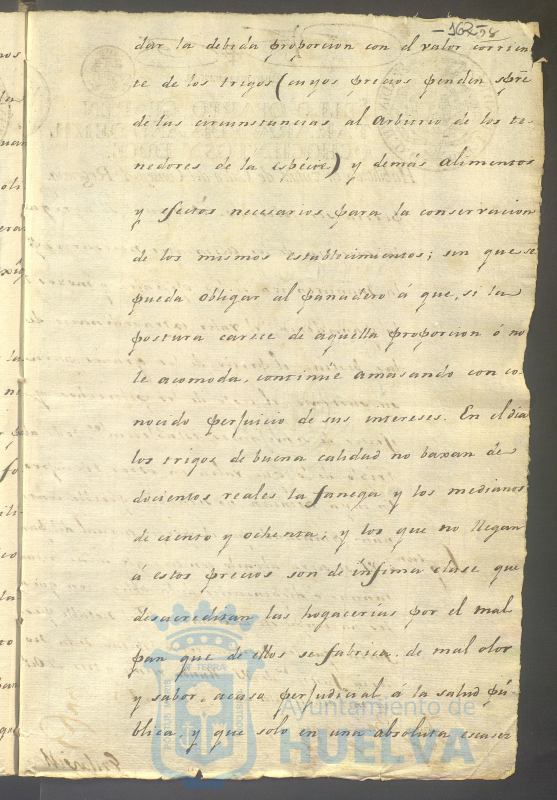 dar la debida proporcion con el valor corrien-
te de los trigos (cuyos precios penden spre
de las circunstancias al arbitrio de los te-
nedores de la espécie) y demás alimentos
y efectos necesarios para la conservacion
de los mismos establecimientos; sin que se
pueda obligar al panadero á que, si la
postura carece de aquella proporcion ó no
le acomoda, continúe amasando con co-
nocido perjuicio de sus intereses. En el dia
los trigos de buena calidad no baxan de
docientos reales la fanega y los medianos
de ciento y ochenta; y los que no llegan
á estos precios son de ínfima clase que
desacreditan las hogacerías por el mal
pan que de ellos se fabrica, de mal olor
y sabor, acaso perjudicial á la salud pú-
blica, y que solo en una absoluta escasez
Ayuntamiento de
HUELVA